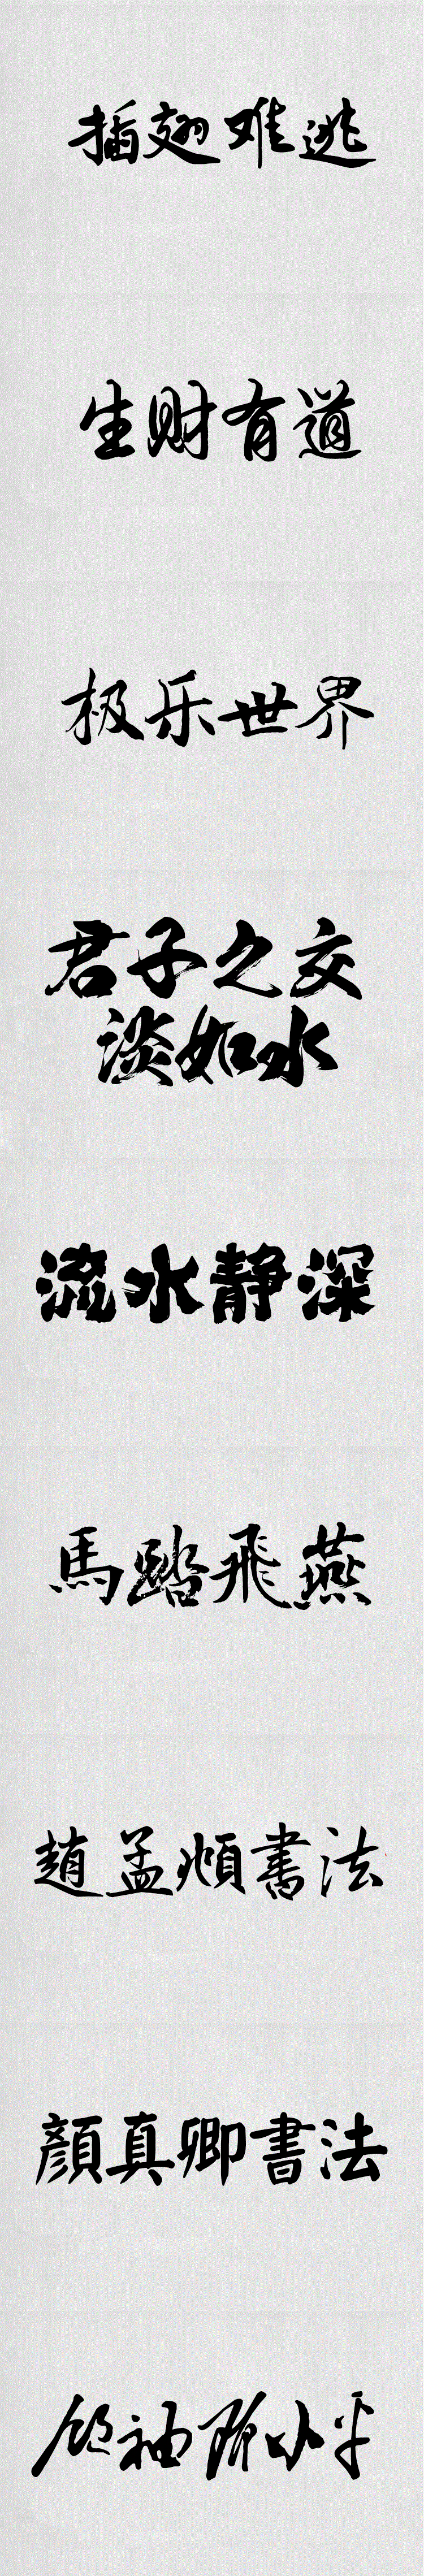 插翅难逃
生财有道
极乐世界
君子之交
淡如水
流水静深
馬踏飛燕
趙孟頫書法
顏真卿書法
袖小平